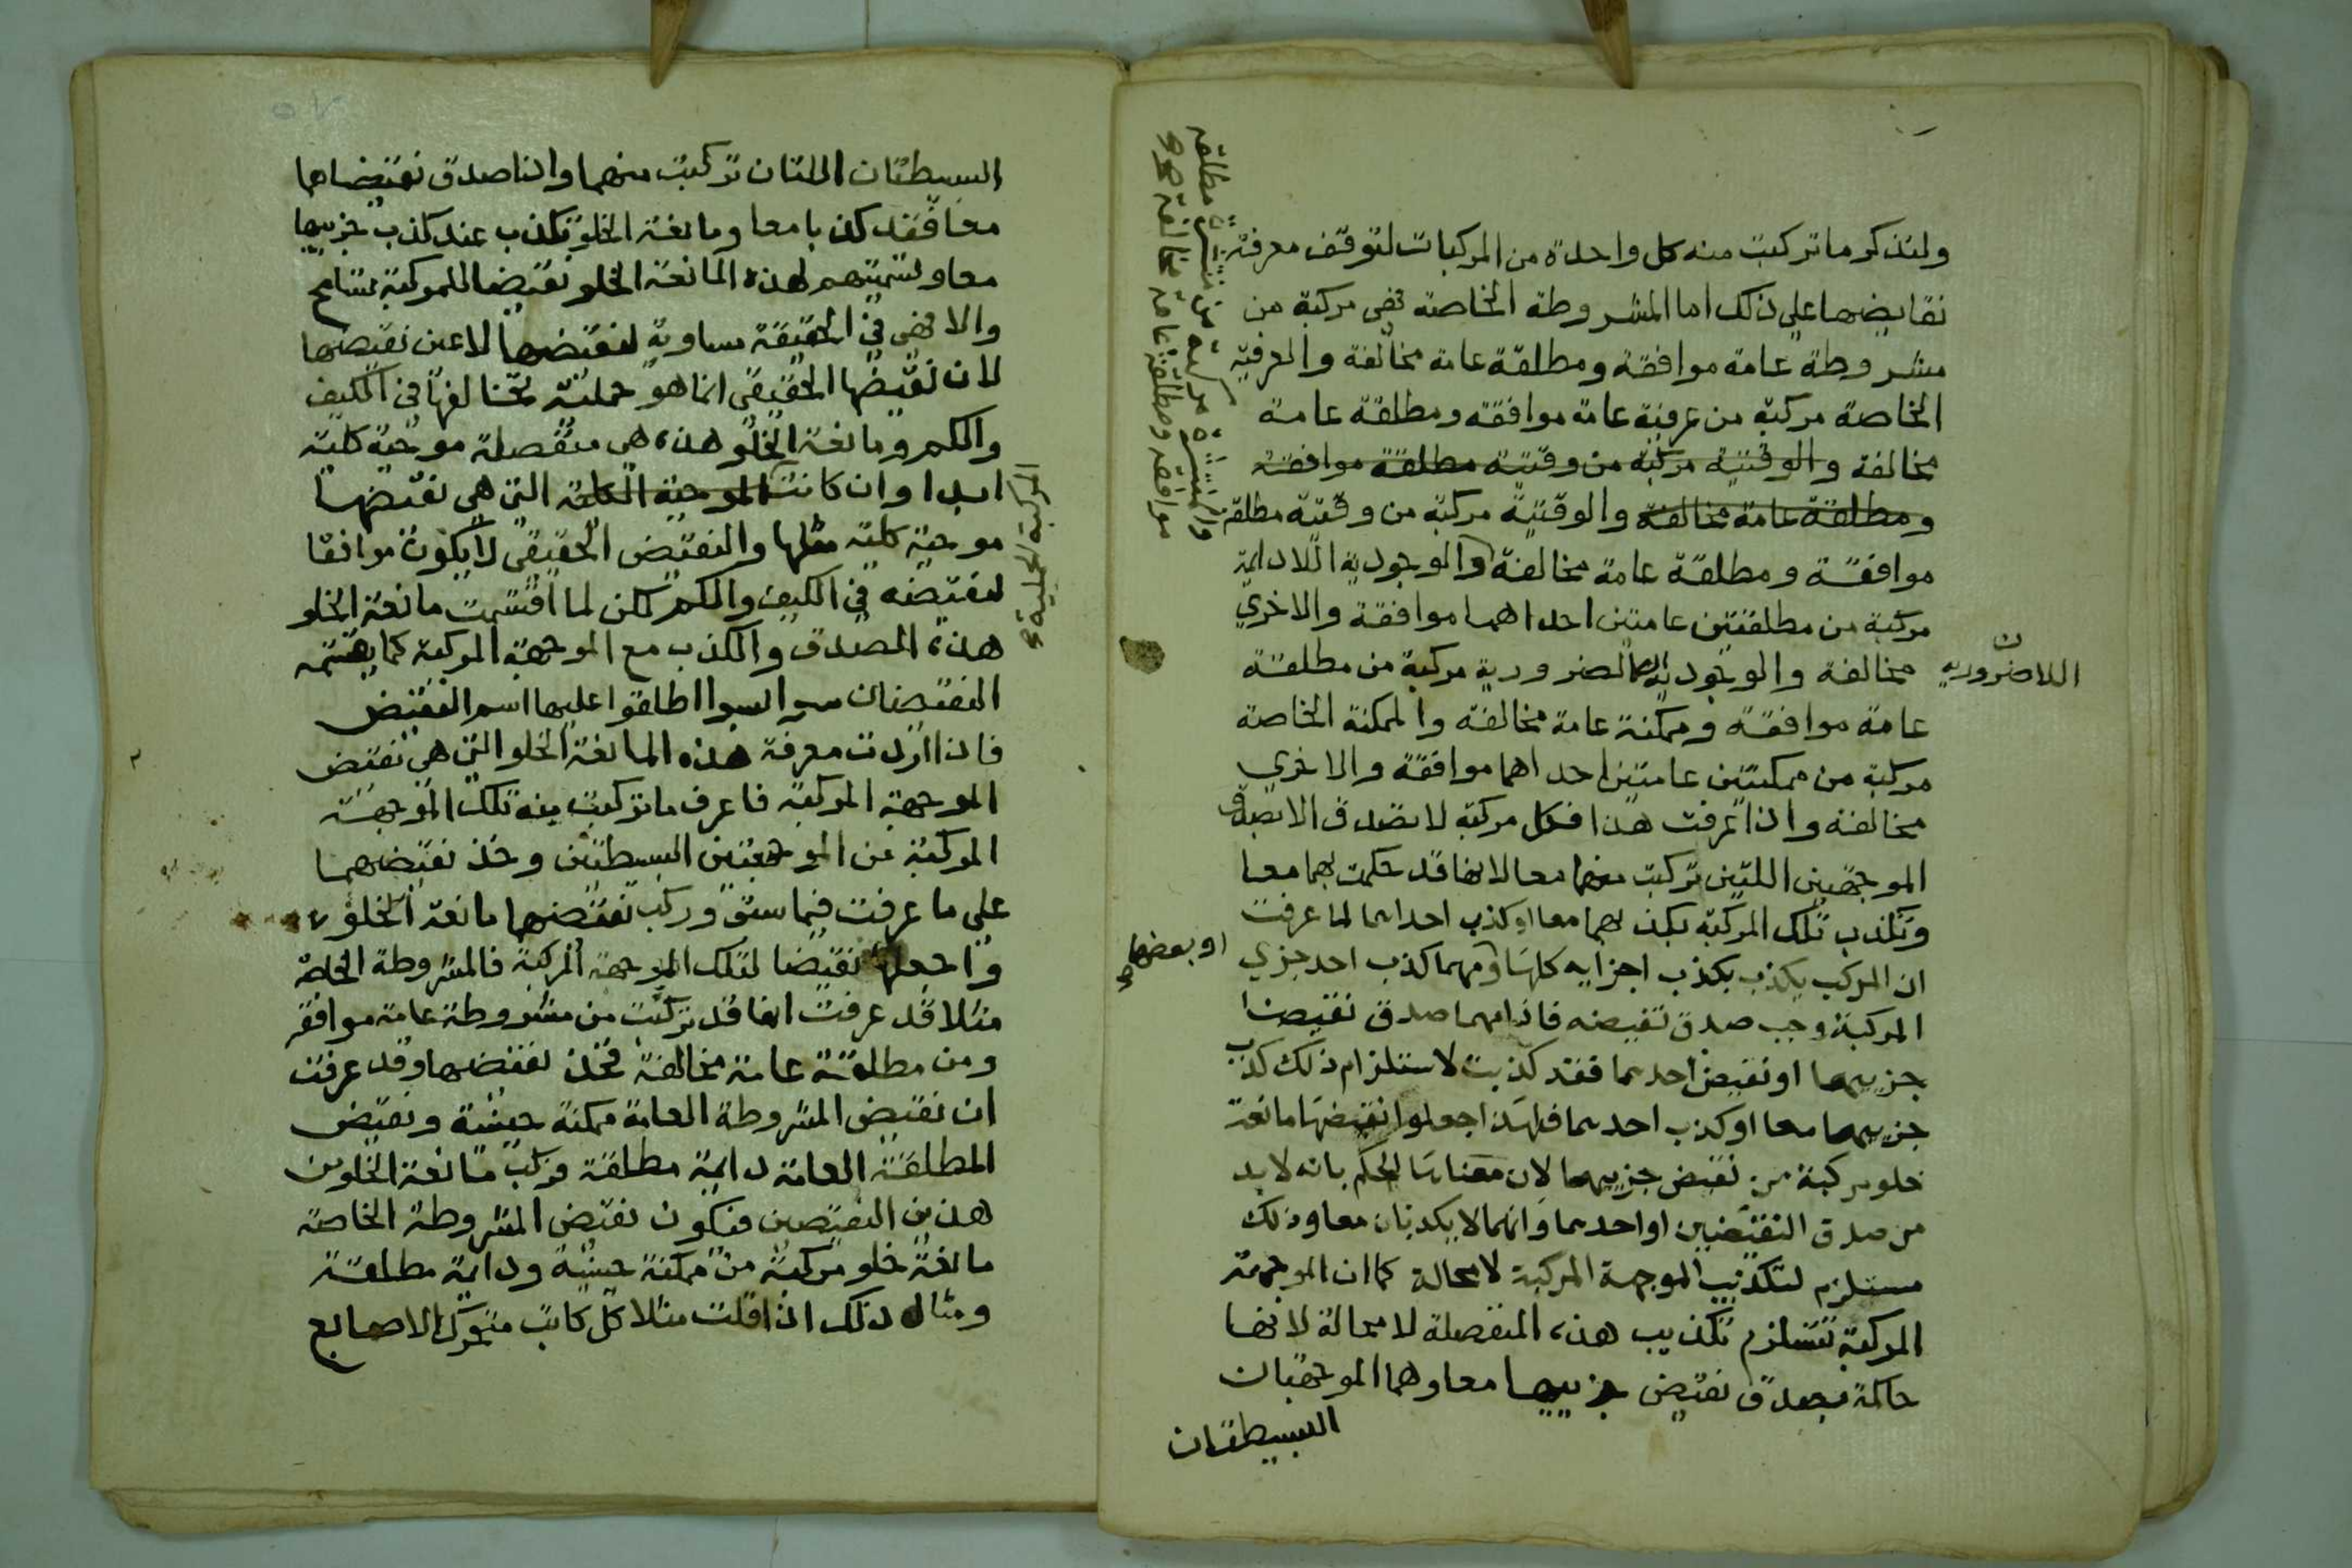 ولنذكر ما تركبت منه كل واحدة من المركبات لتوقف معرفة
نقايضها على ذلك اما المشروطة الخاصة فهى مركبة من
مشروطة عامة موافقة ومطلقة عامة مخالفة والعرفية
الخاصة مركبة من عرفية عامة موافقة ومطلقة عامة
مخالفة والوقتية مركبة من وقتية مطلقة موافقة
ومطلقة عامة مخالفة والوقتية مركبة من وقتية مطلقة
موافقة ومطلقة عامة مخالفة والوجودية اللادايمة
مركبة من مطلقتين عامتين احداهما موافقة والاخري
مخالفة والوجودية الضرورية مركبة من مطلقة
اللاضرورية
عامة موافقة وممكنة عامة مخالفة والممكنة الخاصة
مركبة من ممكنتين عامتين احداهما موافقة والاخري
مخالفة واذا عرفت هذا فكل مركبة لا تصدق الا بصدق
الموجهتين اللتين تركبت منهما معا لانها قد حكمت بهما معا
وتكذب تلك المركبة بكذبهما معا او كذب احداهما لما عرفت
ان المركب يكذب بكذب اجزايه كلها ومهما كذب احد جزي
او بعضها
المركبة وجب صدق نقيضه فاذا مهما صدق نقيضا
جزييها او نقيض احدهما فقد كذبت لاستلزام ذلك كذب
جزييها معا او كذب احدهما فلهذا جعلوا نقيضها مانعة
خلو مركبة من نقيض جزييها لان معناها الحكم بانه لا بد
من صدق النقيضين او احدهما وانهما لا يكذبان معا وذلك
مستلزم لتكذيب الموجهة المركبة لا محالة كما ان الموجهة
المركبة تستلزم تكذيب هذه المنفصلة لا محالة لانها
حاكمة بصدق نقيض جزييها معا وهما الموجهتان
البسيطتان
والمنتشرة مركبة من منتشرة مطلقة
موافقة ومطلقة عامة مخالفة صح
البسيطتان اللتان تركبت منهما واذا صدق نقيضاها
معا فقد كذبا معا ومانعة الخلو تكذب عند كذب جزييها
معا وتسميتهم لهذه المانعة الخلو نقيضا للمركبة تسامح
والا فهى في الحقيقة مساوية لنقيضها لا عين نقيضها
لان نقيضها الحقيقي انما هو حملية تخالفها في الكيف
والكم ومانعة الخلو هذه هى منفصلة موجبة كلية
ابدا وان كانت الموجبة الكلية التي هي نقيضها
المركبة الحملية صح
موجبة كلية مثلها والنقيض الحقيقي لا يكون موافقا
لنقيضه في الكيف والكم لكن لما اقتسمت مانعة الخلو
هذه الصدق والكذب مع الموجهة المركبة كما يقتسمه
النقيضان سوا بسوا اطلقوا عليها اسم النقيض
فاذا اردت معرفة هذه المانعة الخلو التي هي نقيض
الموجهة المركبة فاعرف ما تركبت منه تلك الموجهة
المركبة من الموجهتين البسيطتين وخذ نقيضهما
على ما عرفت فيما سبق وركب نقيضهما مانعة الخلو
واجعلها نقيضا لتلك الموجهة المركبة فالمشروطة الخاصة
مثلا قد عرفت انها قد تركبت من مشروطة عامة موافقة
ومن مطلقة عامة مخالفة فخذ نقيضهما وقد عرفت
ان نقيض المشروطة العامة ممكنة حينية ونقيض
المطلقة العامة دايمة مطلقة فركب مانعة الخلو من
هذين النقيضين فيكون نقيض المشروطة الخاصة
مانعة خلو مركبة من ممكنة حينية ودايمة مطلقة
ومثال ذلك اذا قلت مثلا كل كاتب متحرك الاصابع